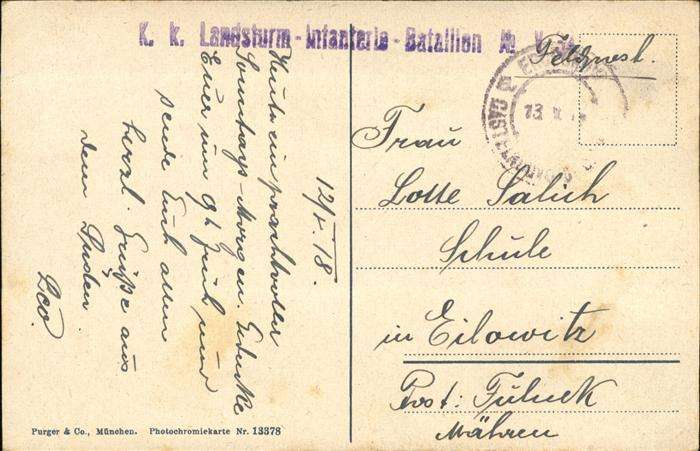 K. k. Landsturm-Infanterie-Bataillon
Feldpost.
12/V. 18.
Heute ein prachtvoller
Sonntags-Morgen. Gedenke
Euer um 9h früh und
sende Euch allen
herzl. Grüße aus
dem Süden
Leo.
Frau
Lotte Salich
Schule
in Eilowitz
Post: Fulnek
Mähren
Purger & Co., München. Photochromiekarte Nr. 13378